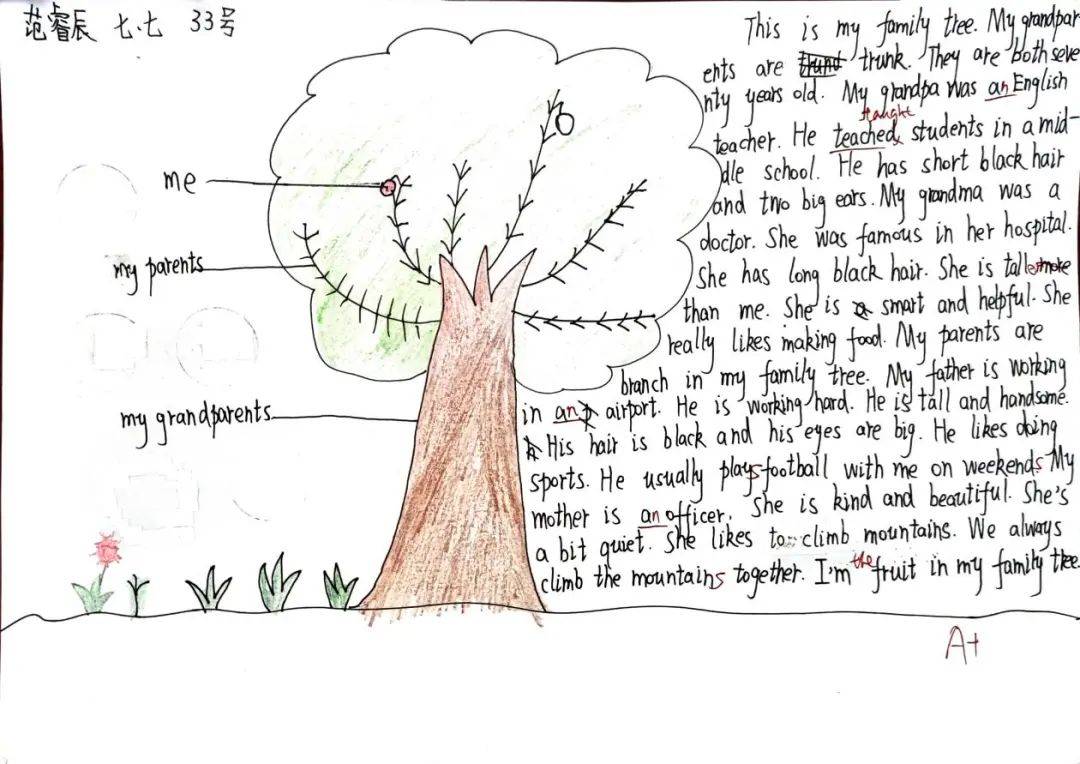 范睿辰 七.七 33号
This is my family tree. My grandpar
ents are trunk. They are both seve
nty years old. My grandpa was an English
taught
teacher. He teached students in a mid-
dle school. He has short black hair
and two big ears. My grandma was a
doctor. She was famous in her hospital.
She has long black hair. She is taller more
than me. She is a smart and helpful. She
really likes making food. My parents are
branch in my family tree. My father is working
in an airport. He is working hard. He is tall and handsome.
His hair is black and his eyes are big. He likes doing
sports. He usually plays football with me on weekends My
mother is an officer. She is kind and beautiful. She's
a bit quiet. She likes to climb mountains. We always
climb the mountains together. I'm the fruit in my family tree.
me
my parents
my grandparents
A+